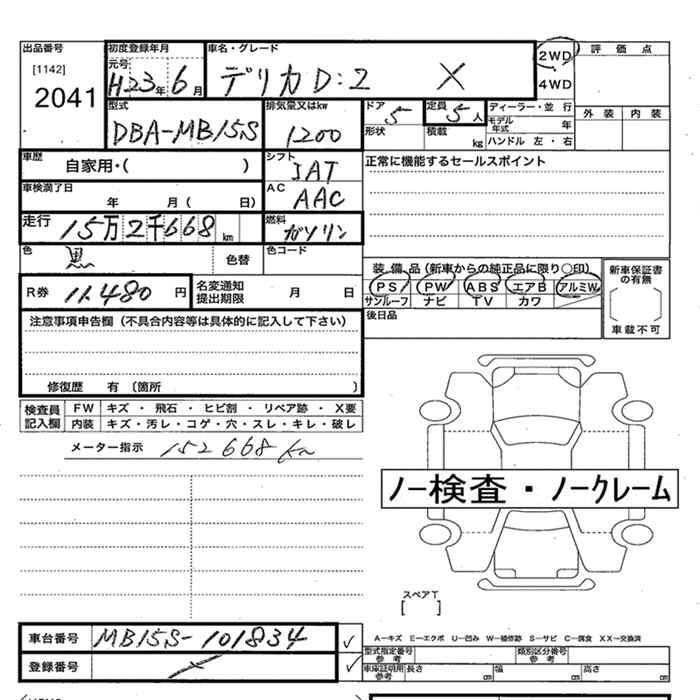 出品番号 初度登録年月 車名・グレード 2WD 評価点
[1142] 元号 H23年6月 デリカD:2 X 4WD
2041 型式 排気量又はkw ドア 定員 ディーラー・並行 外装 内装
DBA-MB15S 1200 5 5人 モデル年式 年
形状 積載 kg ハンドル 左・右
車歴 自家用・( ) シフト IAT 正常に機能するセールスポイント
車検満了日 年 月( 日) AC AAC
走行 15万2千668km 燃料 ガソリン
色 黒 色替 色コード 装備品(新車からの純正品に限り○印) 新車保証書の有無
R券 11,480円 名変通知提出期限 月 日 PS PW ABS エアB アルミW
サンルーフ ナビ TV カワ
注意事項申告欄(不具合内容等は具体的に記入して下さい) 後日品 車載不可
修復歴 有 〔箇所 〕
検査員記入欄 FW キズ・飛石・ヒビ割・リペア跡・X要
内装 キズ・汚レ・コゲ・穴・スレ・キレ・破レ
メーター指示 152668km
ノー検査・ノークレーム
スペアT
[ ]
車台番号 MB15S-101834 A−キズ E−エクボ U−凹み W−補修跡 S−サビ C−腐食 XX−交換済
型式指定番号 参考 類別区分番号 参考
登録番号 車庫証明用 参考 長さ cm 幅 cm 高さ cm